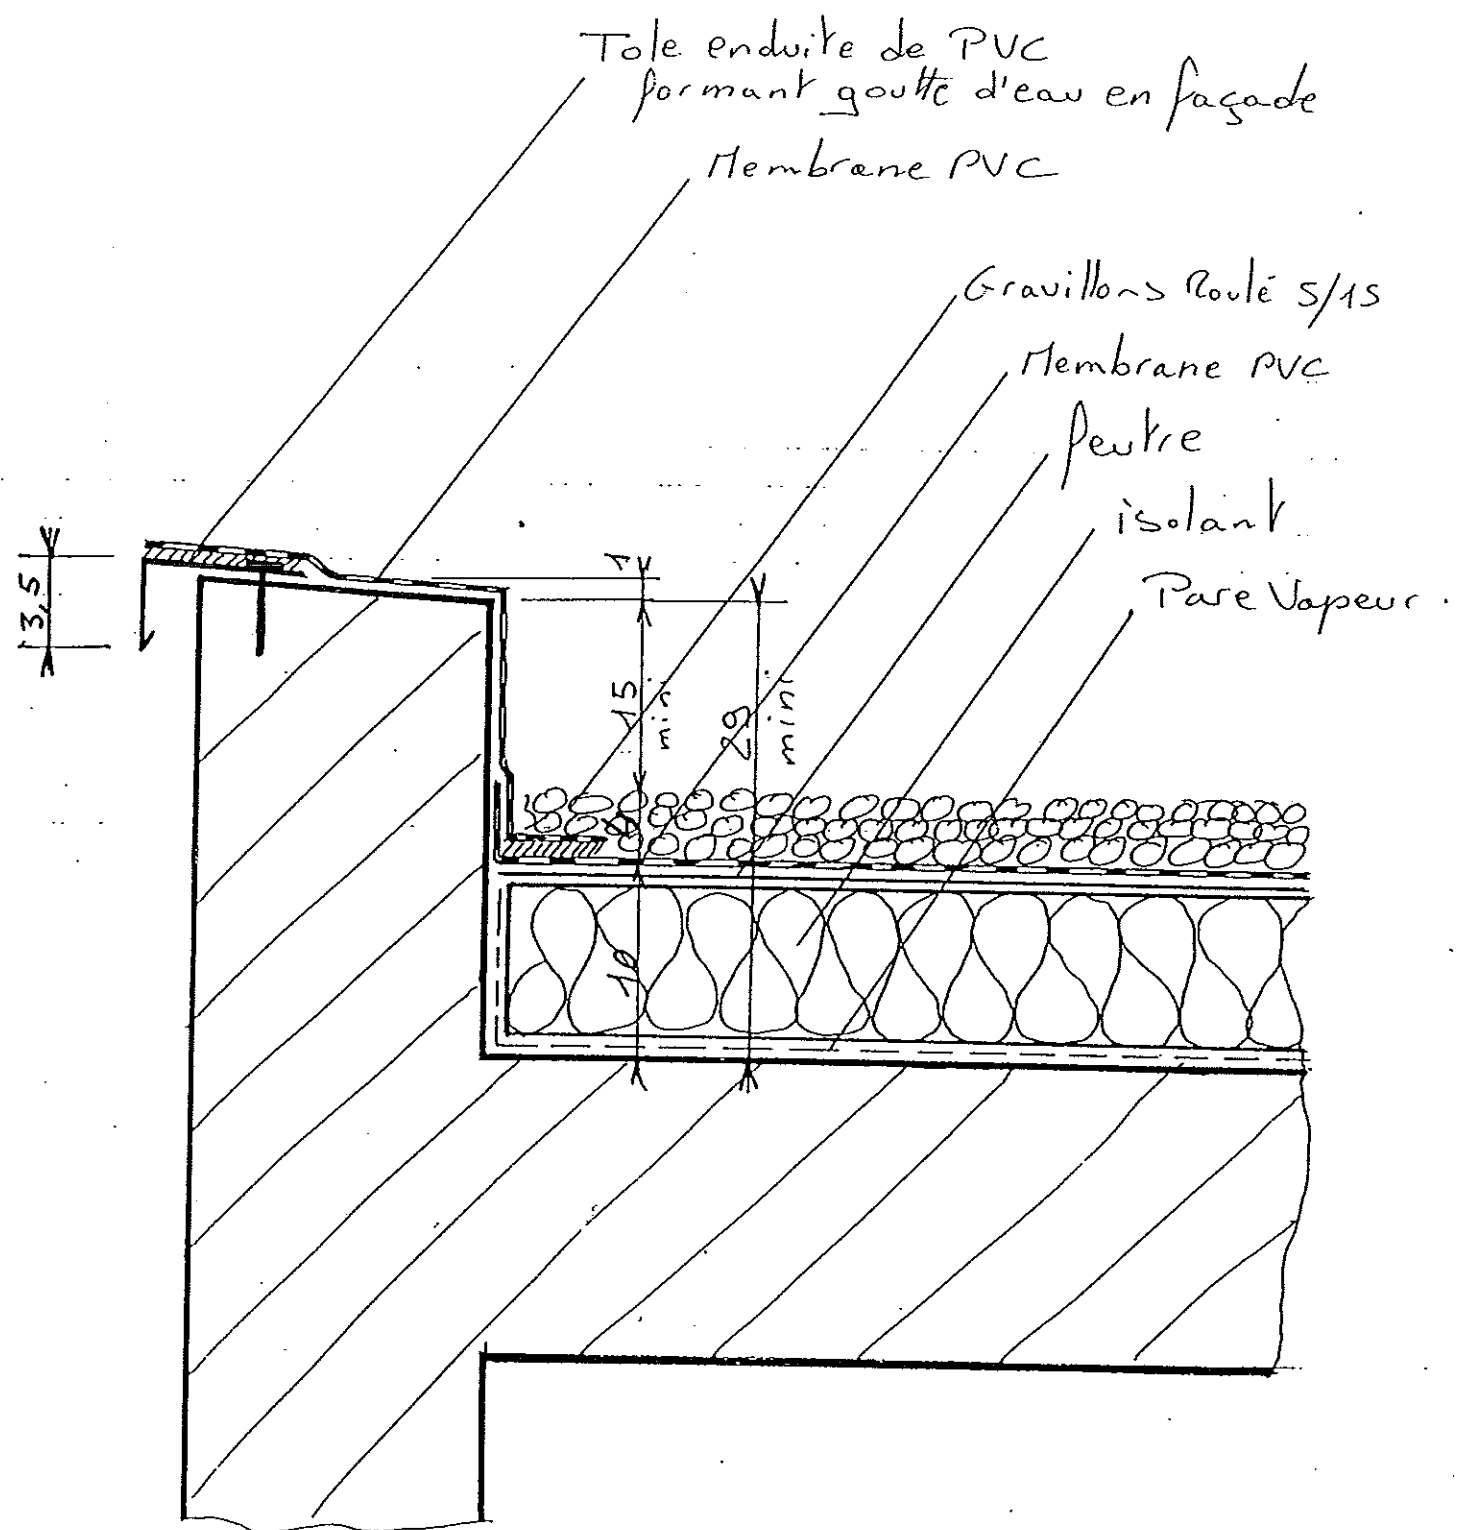 Tole enduite de PVC
formant goutte d'eau en façade
Membrane PVC
Gravillons Roulé 5/15
Membrane PVC
feutre
isolant
Pare Vapeur.
1
3,5
15
min
29
min
4
10